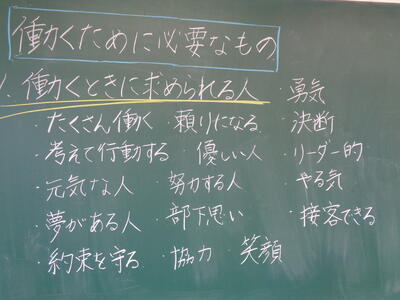 働くために必要なもの
1. 働くときに求められる人 ・勇気
・たくさん働く ・頼りになる ・決断
・考えて行動する ・優しい人 ・リーダー的
・元気な人 ・努力する人 ・やる気
・夢がある人 ・部下思い ・接客できる
・約束を守る ・協力 ・笑顔